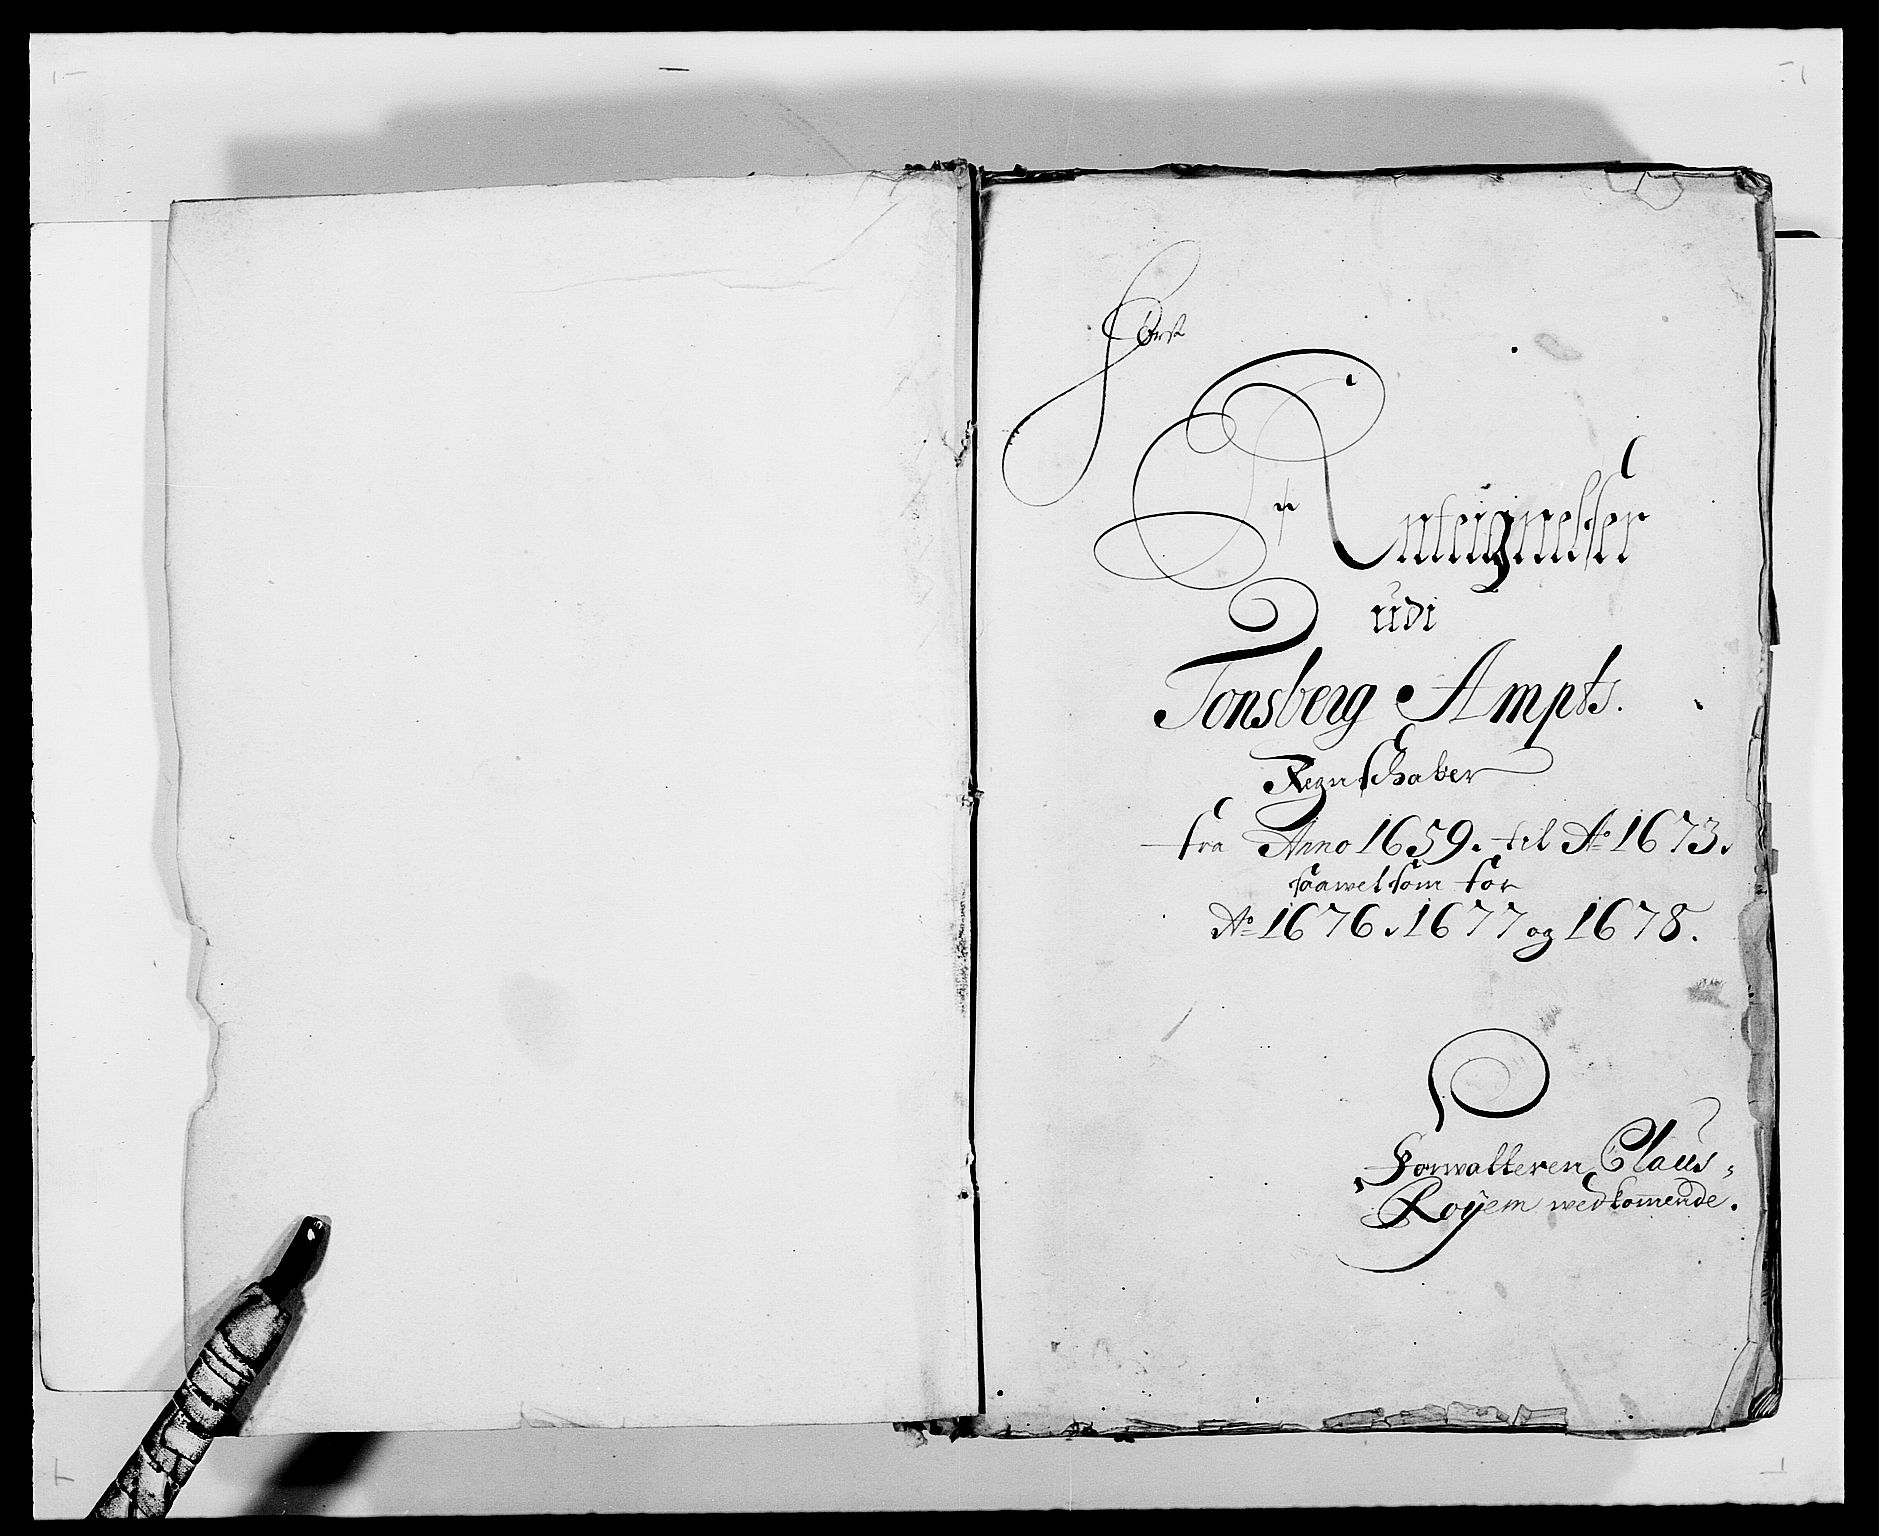 Først
Anteignelser
udi
Tonsberg Ampts.
Regnschaber
fra Anno 1659. til Ao 1673.
saawelsom for
Ao 1676. 1677 og 1678.
Forwalteren Claus
Röyem wedkomende.